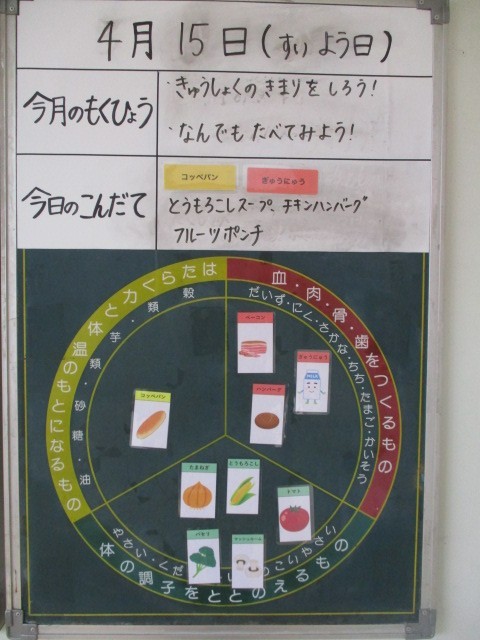 4月15日(すいよう日)
今月のもくひょう
・きゅうしょくのきまりをしろう!
・なんでもたべてみよう!
今日のこんだて
コッペパン
ぎゅうにゅう
とうもろこしスープ、チキンハンバーグ
フルーツポンチ
体と力くらたは
温のもとになるもの
穀類・芋類・砂糖・油
血・肉・骨・歯をつくるもの
だいず・にく・さかな・ちち・たまご・かいそう
ベーコン
ぎゅうにゅう
ハンバーグ
コッペパン
たまねぎ
とうもろこし
トマト
パセリ
マッシュルーム
やさい・くだ
こいやさい
体の調子をととのえるもの